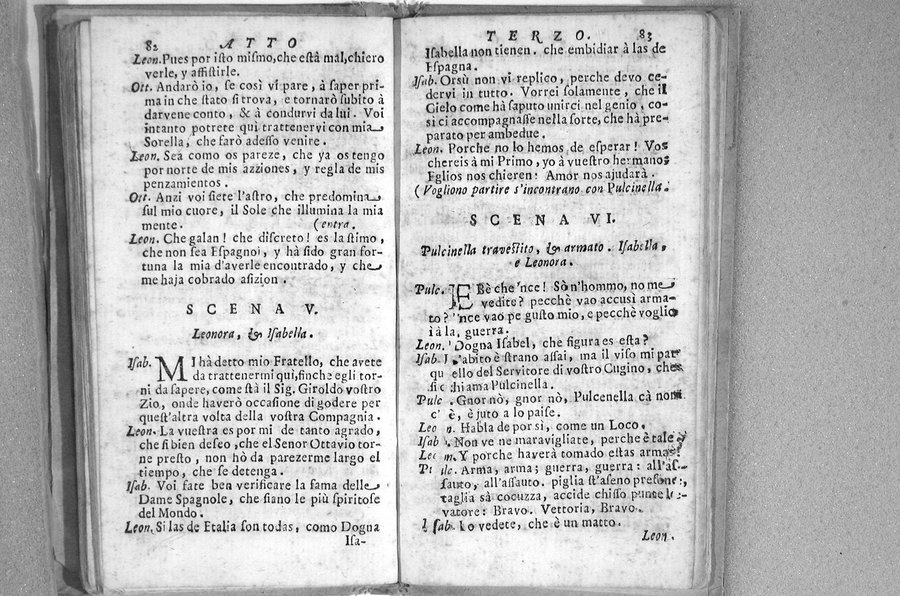 82 ATTO
Leon. Pues por isto mismo, che està mal, chiero
verle, y assistirle.
Ott. Andarò io, se così vi pare, à saper pri-
ma in che stato si trova, e tornarò subito à
darvene conto, & à condurvi da lui. Voi
intanto potrete qui trattenervi con mia
Sorella, che farò adesso venire.
Leon. Sea como os pareze, che ya os tengo
por norte de mis azziones, y regla de mis
penzamientos.
Ott. Anzi voi siete l'astro, che predomina
sul mio cuore, il Sole che illumina la mia
mente. (entra.
Leon. Che galan! che discreto! es lastimo,
che non sea Espagnol, y hà sido gran for-
tuna la mia d'averle encontrado, y che
me haja cobrado afizion.
SCENA V.
Leonora, & Isabella.
Isab. MI hà detto mio Fratello, che avete
da trattenermi qui, finche egli tor-
ni da sapere, come stà il Sig. Giroldo vostro
Zio, onde haverò occasione di godere per
quest'altra volta della vostra Compagnia.
Leon. La vuestra es por mi de tanto agrado,
che si bien desco, che el Senor Ottavio tor-
ne presto, non hò da parezerme largo el
tiempo, che se detenga.
Isab. Voi fate ben verificare la fama delle
Dame Spagnole, che siano le più spiritose
del Mondo.
Leon. Si las de Etalia son todas, como Dogna
Isa-
TERZO. 83
Isabella non tienen. che embidiar à las de
Espagna.
Isab. Orsù non vi replico, perche devo ce-
dervi in tutto. Vorrei solamente, che il
Cielo come hà saputo unirci nel genio, co-
sì ci accompagnasse nella sorte, che hà pre-
parato per ambedue.
Leon. Porche no lo hemos de esperar! Vos
chereis à mi Primo, yo à vuestro hermano,
Eglios nos chieren: Amor nos ajudarà.
(Vogliono partire s'incontrano con Pulcinella.
SCENA VI.
Pulcinella travestito, & armato. Isabella,
e Leonora.
Pulc. EBè che 'nce! Sò n'hommo, no me
vedite? pecchè vao accusì arma-
to? 'nce vao pe gusto mio, e pecchè voglio
ì à la, guerra.
Leon. Dogna Isabel, che figura es esta?
Isab. L'abito è strano assai, ma il viso mi par
quello del Servitore di vostro Cugino, che
si chiama Pulcinella.
Pulc. Gnor nò, gnor nò, Pulcenella cà non
c' è, è juto a lo paise.
Leon. Habla de por sì, como un Loco.
Isab. Non ve ne maravigliate, perche è tale
Leon. Y porche haverà tomado estas armas?
Pulc. Arma, arma; guerra, guerra: all'as-
sauto, all'assauto. piglia st'aseno presone:,
taglia sà cocuzza, accide chisso
vatore: Bravo. Vettoria, Bravo.
Isab. Lo vedete, che è un matto.
Leon.